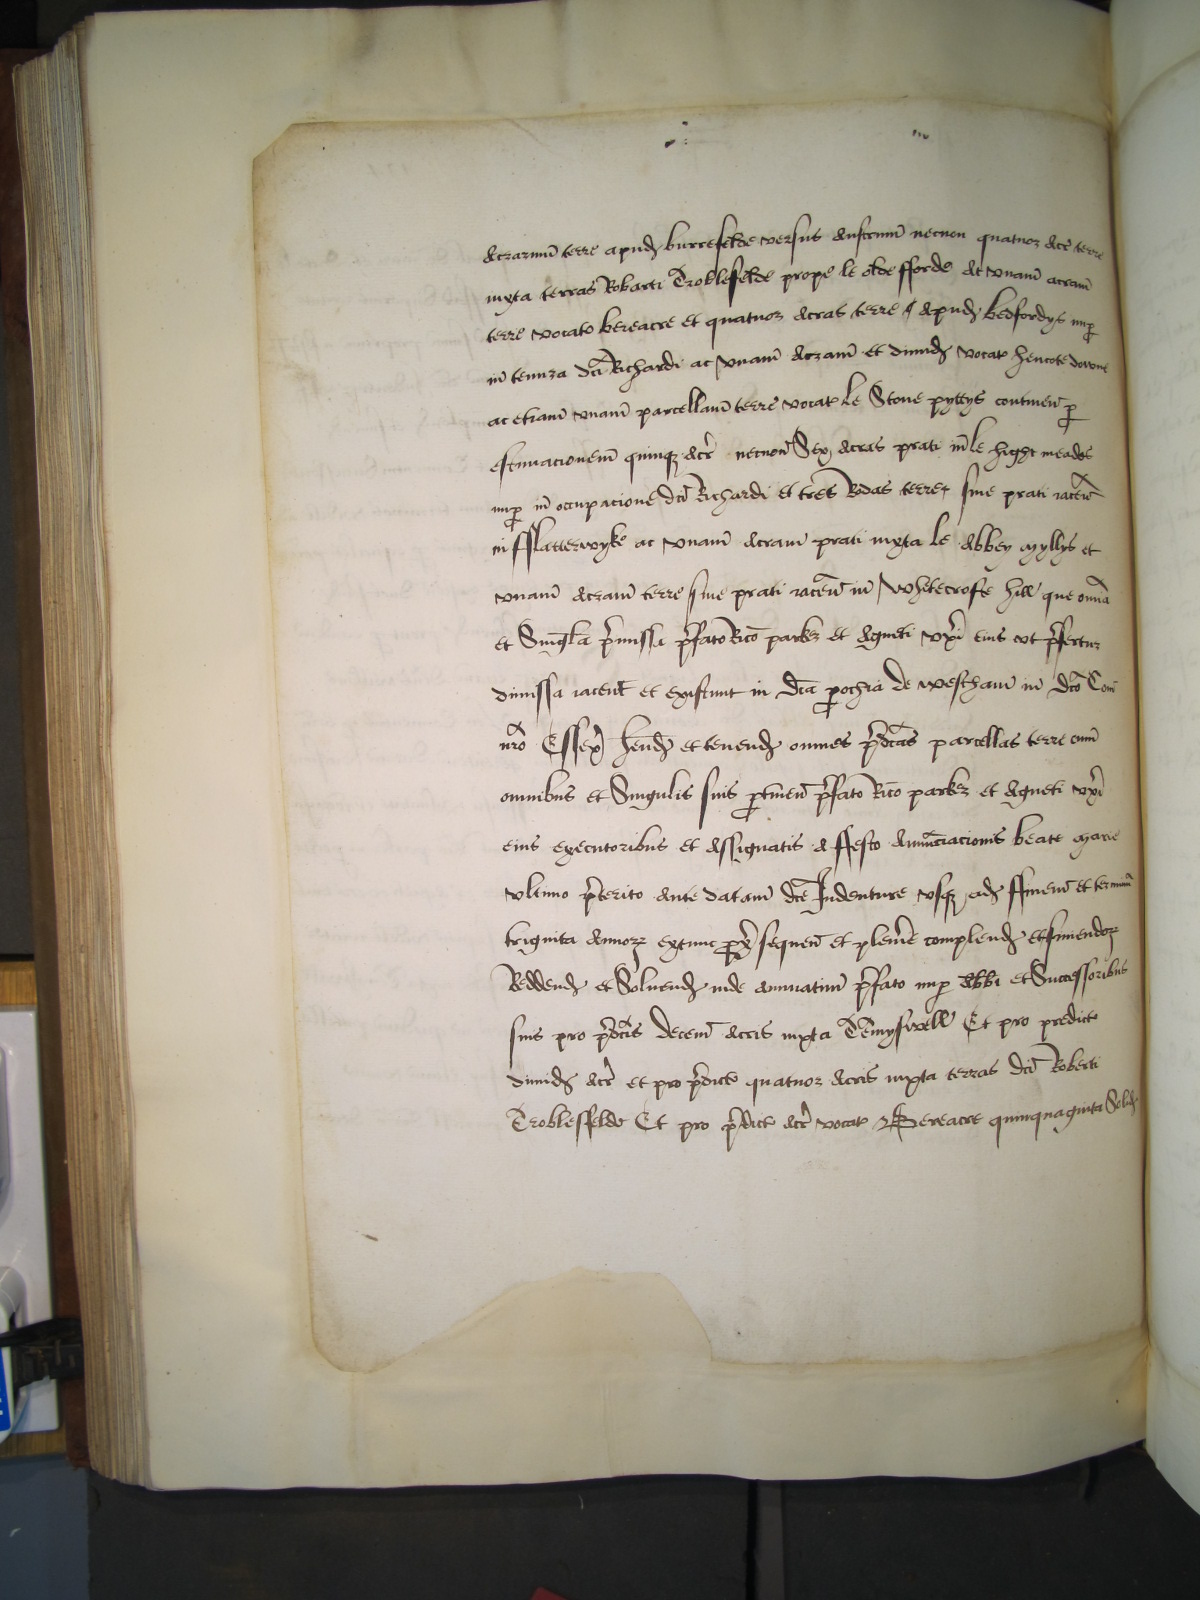 acrarum̄ terre apud burrefelde versus Austrum̄ necnon quatuor acr̄ terre
iuxta terras Robarti Troblefelde prope le olde fforde Ac vnam̄ acram̄
terre vocato bereacre et quatuor acras terre apud bedfordys nup
in tenura dc̄i Richardi ac vnam̄ acram̄ et dimid vocat hencote downe
ac etiam̄ vnam̄ parcellam̄ terre vocat le Stone pyttys continen̄ p
estimacionem̄ quinq acr̄ necnon̄ Sex acras prati in̄ le hight meade
nup in̄ occupacione dc̄i Richardi et tres Rodas terre siue prati iacen̄
in fflatterwyke ac vnam̄ acram prati iuxta le Abbey Myllys et
vnam̄ acram̄ terre siue prati iacen̄ in̄ Whetecrofte hill que om̄ia
et Singl̄a p̄missa p̄fato Ric̄o parker et Agneti vx̄i eius vt p̄fertur
dimissa iacent̄ et existunt in dc̄a pochia de Westham̄ in̄ dc̄o Com̄
nr̄o Essex̄ hen̄d et tenend omnes p̄dc̄as parcellas terre cum̄
omnibus et Singulis suis ptinen̄ p̄fato Ric̄o parker et Agneti vx̄i
eius executoribus et Assignatis A ffesto Annunciacionis beate Marie
vltimo p̄terito ante datam̄ dc̄e Indenture vsq ad ffinem̄ et terminū
triginta Annorz extunc prox̄ sequen̄ et plen̄e complend et finiendorz
Reddend et Soluend inde annuatim̄ p̄fato nup abb̄i et Successoribus
suis pro p̄dc̄is decem̄ acris iuxta Temyswell Et pro predict
dimid acr̄ et pro p̄dict quatuor acris iuxta terras dc̄i Roberti
Troblesfelde Et pro p̄dict acr̄ vocat Bereacre quinquaginta Solid